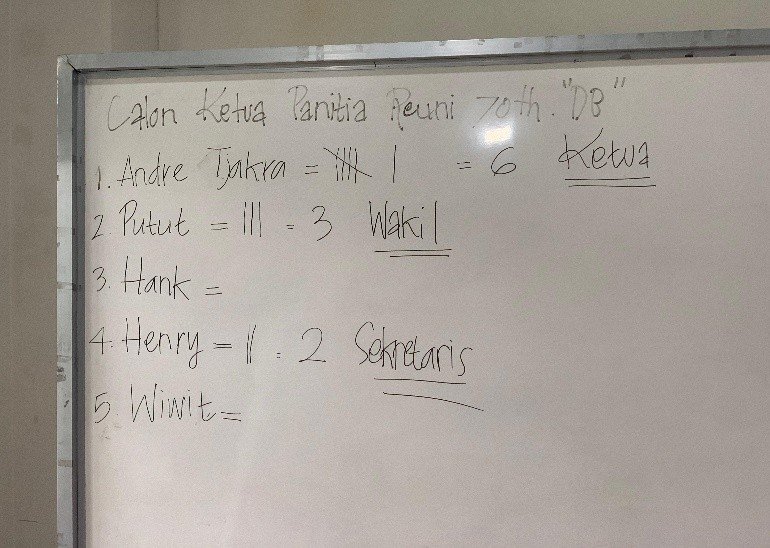 Calon Ketua Panitia Reuni 70th. "DB"
1. Andre Tjakra = |||| | = 6 Ketua
2. Putut = ||| = 3 Wakil
3. Hank =
4. Henry = || = 2 Sekretaris
5. Wiwit =